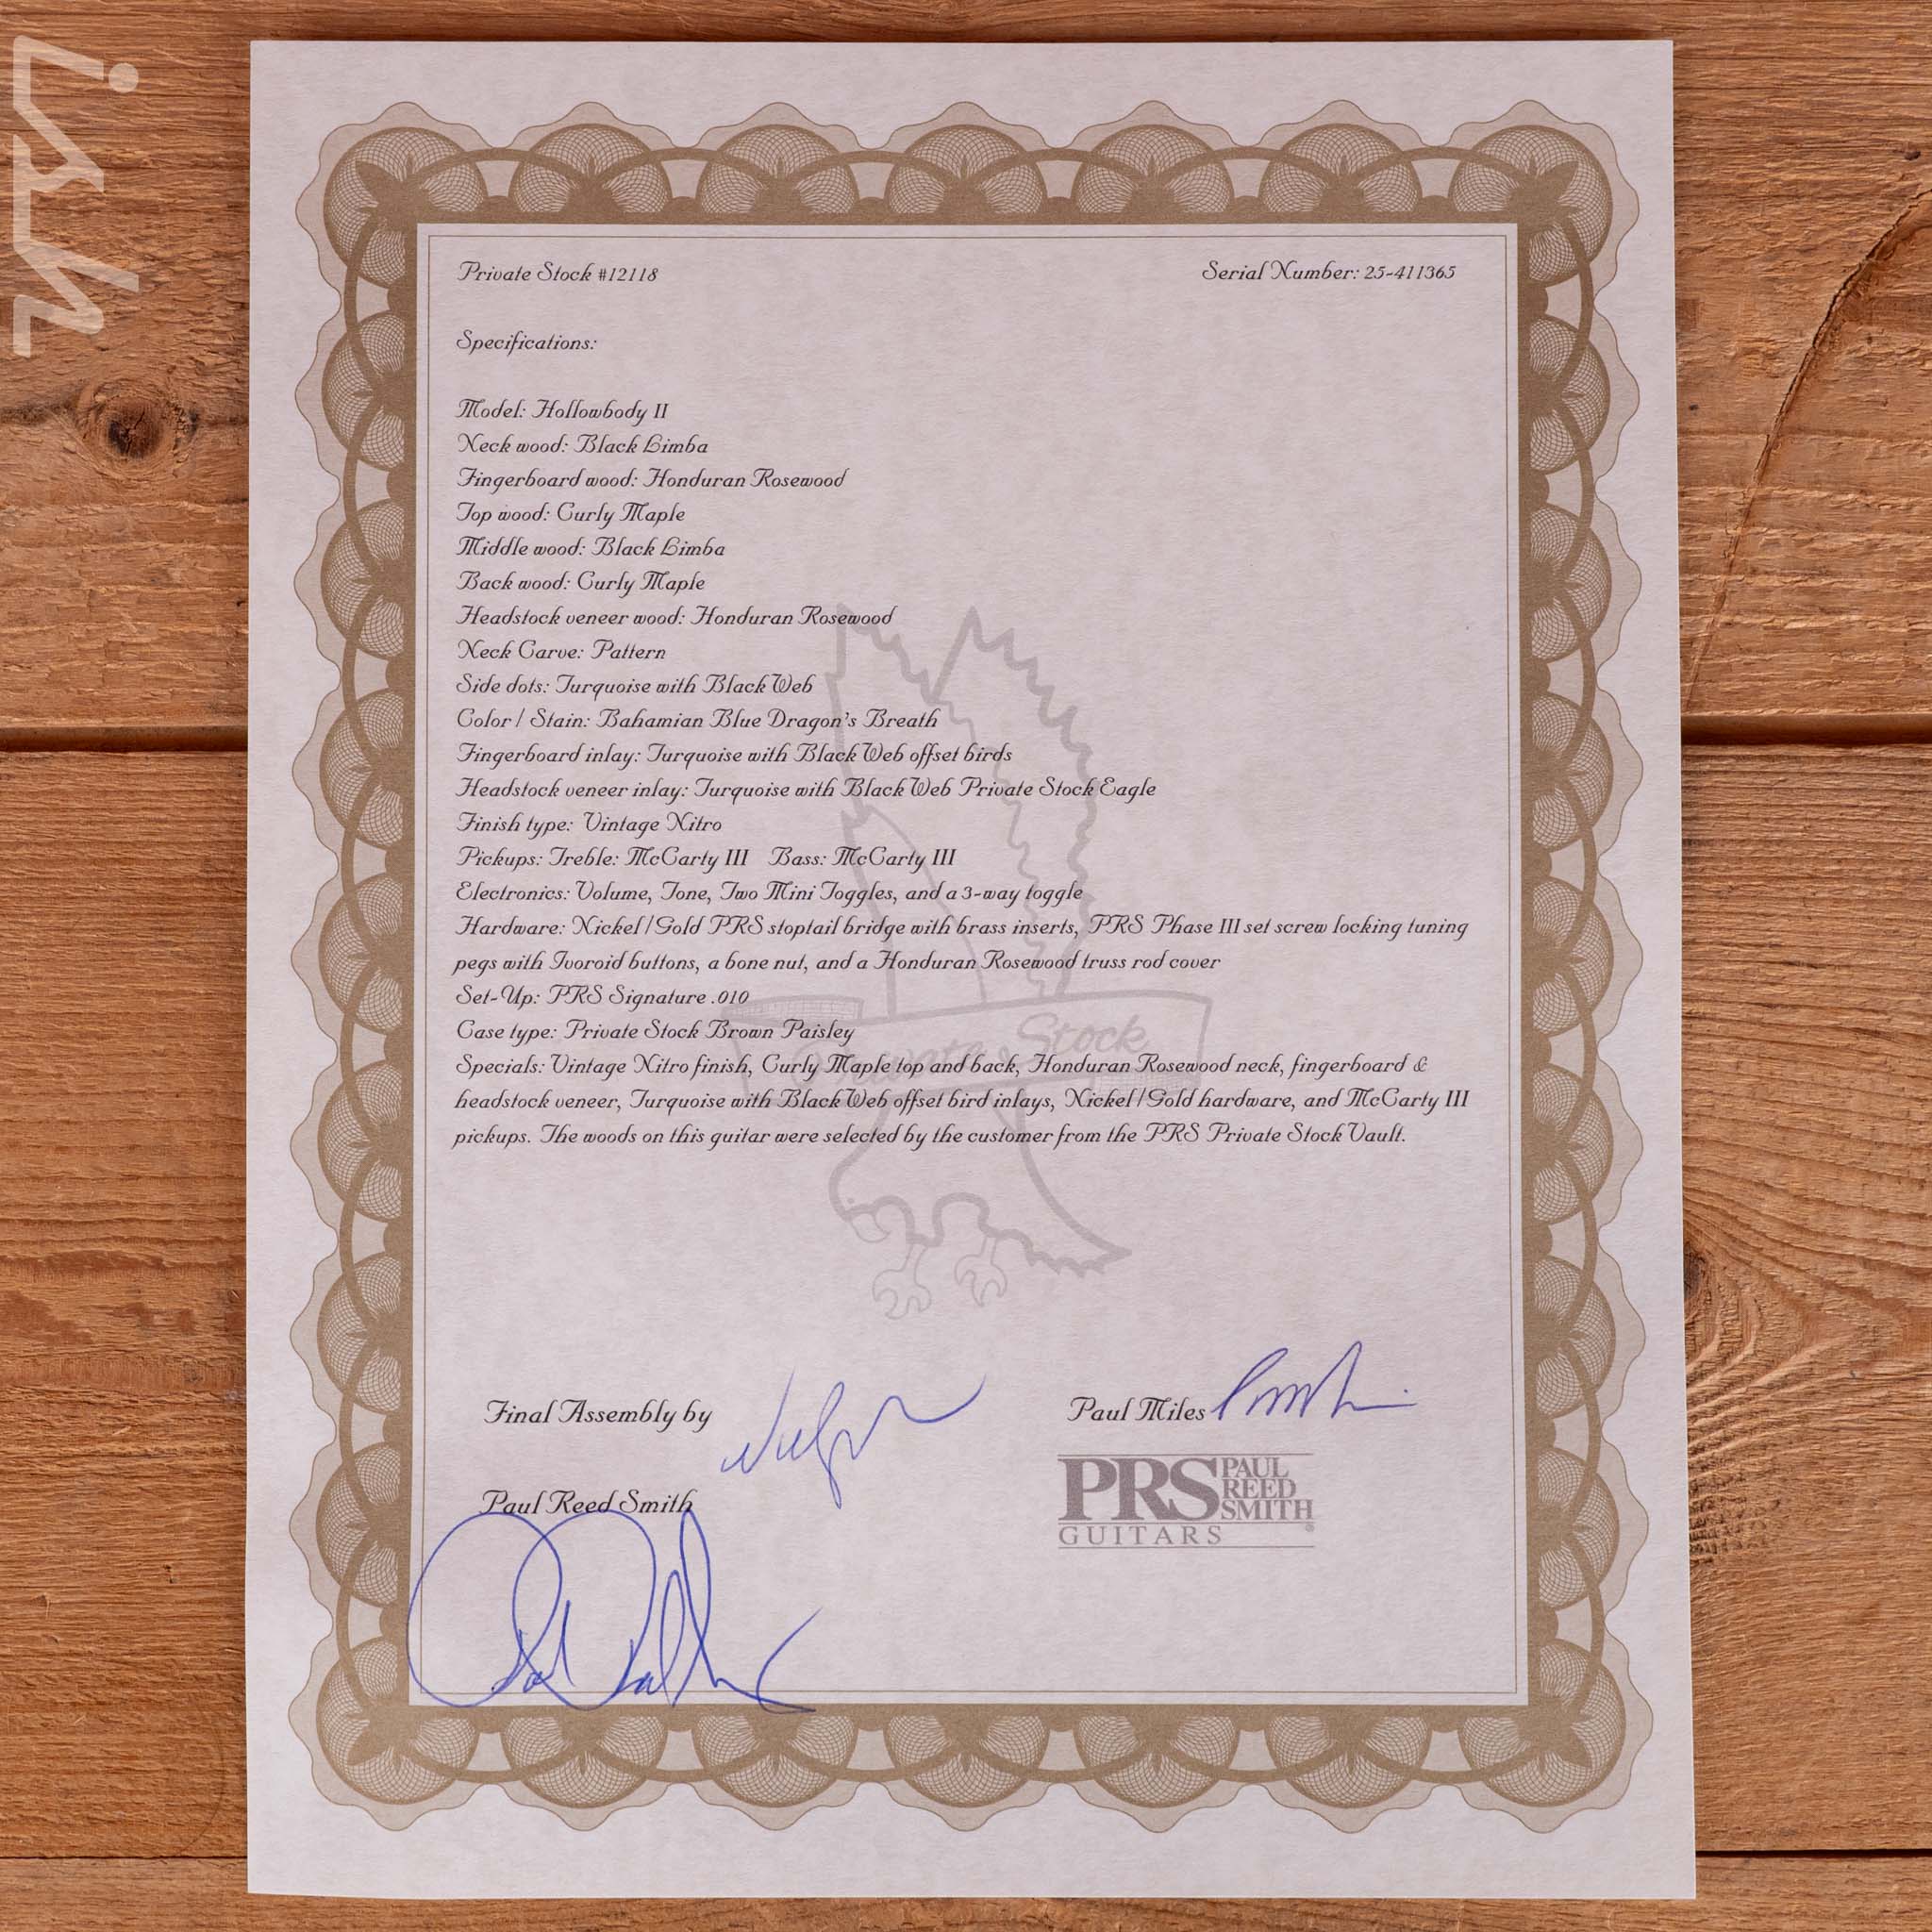 Private Stock #12118
Serial Number: 25-411365
Specifications:
Model: Hollowbody II
Neck wood: Black Limba
Fingerboard wood: Honduran Rosewood
Top wood: Curly Maple
Middle wood: Black Limba
Back wood: Curly Maple
Headstock veneer wood: Honduran Rosewood
Neck Carve: Pattern
Side dots: Turquoise with Black Web
Color / Stain: Bahamian Blue Dragon's Breath
Fingerboard inlay: Turquoise with Black Web offset birds
Headstock veneer inlay: Turquoise with Black Web Private Stock Eagle
Finish type: Vintage Nitro
Pickups: Treble: McCarty III Bass: McCarty III
Electronics: Volume, Tone, Two Mini Toggles, and a 3-way toggle
Hardware: Nickel/Gold PRS stoptail bridge with brass inserts, PRS Phase III set screw locking tuning
pegs with Ivoroid buttons, a bone nut, and a Honduran Rosewood truss rod cover
Set-Up: PRS Signature .010
Case type: Private Stock Brown Paisley
Private Stock
Specials: Vintage Nitro finish, Curly Maple top and back, Honduran Rosewood neck, fingerboard &
headstock veneer, Turquoise with Black Web offset bird inlays, Nickel/Gold hardware, and McCarty III
pickups. The woods on this guitar were selected by the customer from the PRS Private Stock Vault.
Final Assembly by
Paul Miles
Paul Reed Smith
PRS PAUL REED SMITH
GUITARS